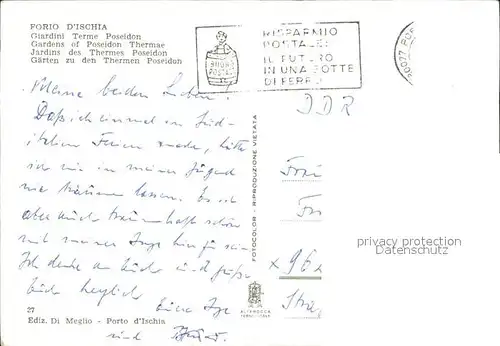 FORIO D'ISCHIA
Giardini Terme Poseidon
Gardens of Poseidon Thermae
Jardins des Thermes Poseidon
Gärten zu den Thermen Poseidon
BUONI
POSTALI
RISPARMIO
POSTALE:
IL FUTURO
IN UNA BOTTE
DI FERRO
80077 POR
DDR
Meine beiden Lieben!
Daß ich einmal in Süd-
italien Ferien mache, hätte
ich mir in meiner Jugend
nie träumen lassen. Es ist
aber auch traumhaft schön
mit meiner Inge hier zu sein.
Ich denke an Euch und grüße
Euch herzlich
Eure Inge
und
Frau
x 96 x
FOTOCOLOR - RIPRODUZIONE VIETATA
ALTEROCCA
TERNI - ITALY
27
Ediz. Di Meglio - Porto d'Ischia
privacy protection
Datenschutz